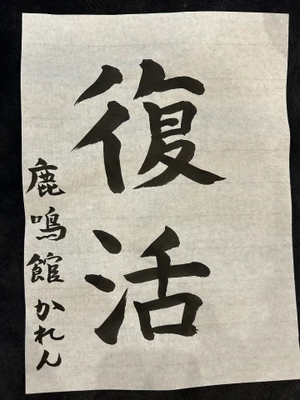 復活
鹿鳴館かれん